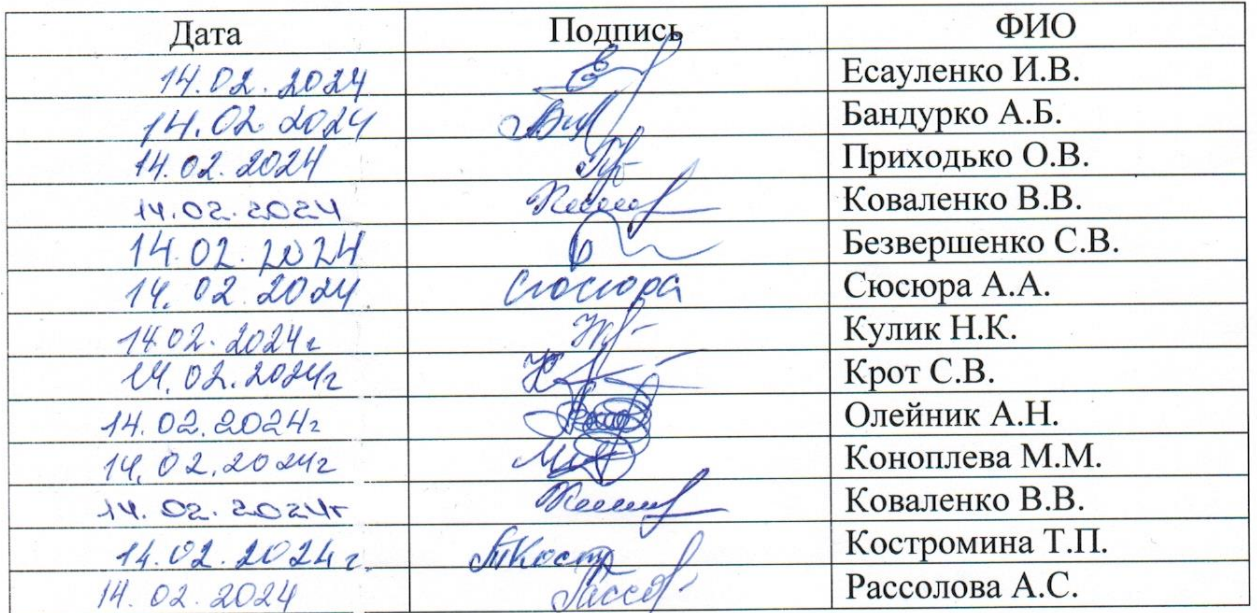 Дата Подпись ФИО
14.02.2024 Есауленко И.В.
14.02.2024 Бандурко А.Б.
14.02.2024 Приходько О.В.
14.02.2024 Коваленко В.В.
14.02.2024 Безвершенко С.В.
14.02.2024 Сюсюра Сюсюра А.А.
14.02.2024г Кулик Н.К.
14.02.2024г Крот С.В.
14.02.2024г Олейник А.Н.
14.02.2024г Коноплева М.М.
14.02.2024г Коваленко В.В.
14.02.2024г. Костромина Т.П.
14.02.2024 Рассолова А.С.